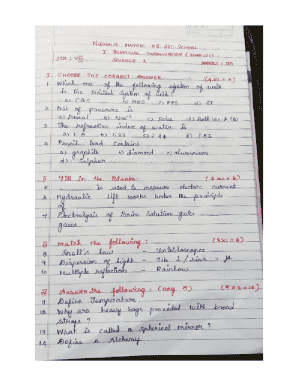 NIRMALA MATRIC HR. SEC. SCHOOL
STD : VIII
SCIENCE
MARKS : 30
I CHOOSE THE CORRECT ANSWER
1 Which one of the following system of unit
is the British system of unit?
a) CGS b) MKS c) FPS d) SI
2 Unit of pressure is
a) Pascal b) Nm-2 d) Both (a) & (b)
3 The refractive index of water is
a) 1.0 b) 1.33 c) 1.44 d) 1.52
4 Pencil lead contains
a) graphite b) diamond c) aluminium
d) sulphur
II Fill in the Blanks:
5 is used to measure electric current
6 Hydraulic lift works under the principle
of
7 Electrolysis of Brine solution gets
gases.
Match the following:
8 Snell's law - Kaleidoscopes
9 Dispersion of light - Sin i / sin r = μ
10 Multiple reflection - Rainbow
Answer the following: (any 5)
11 Define Temperature
12 Why are heavy bags provided with broad
straps?
13 What is called a spherical mirror?
14 Define a Alchemy